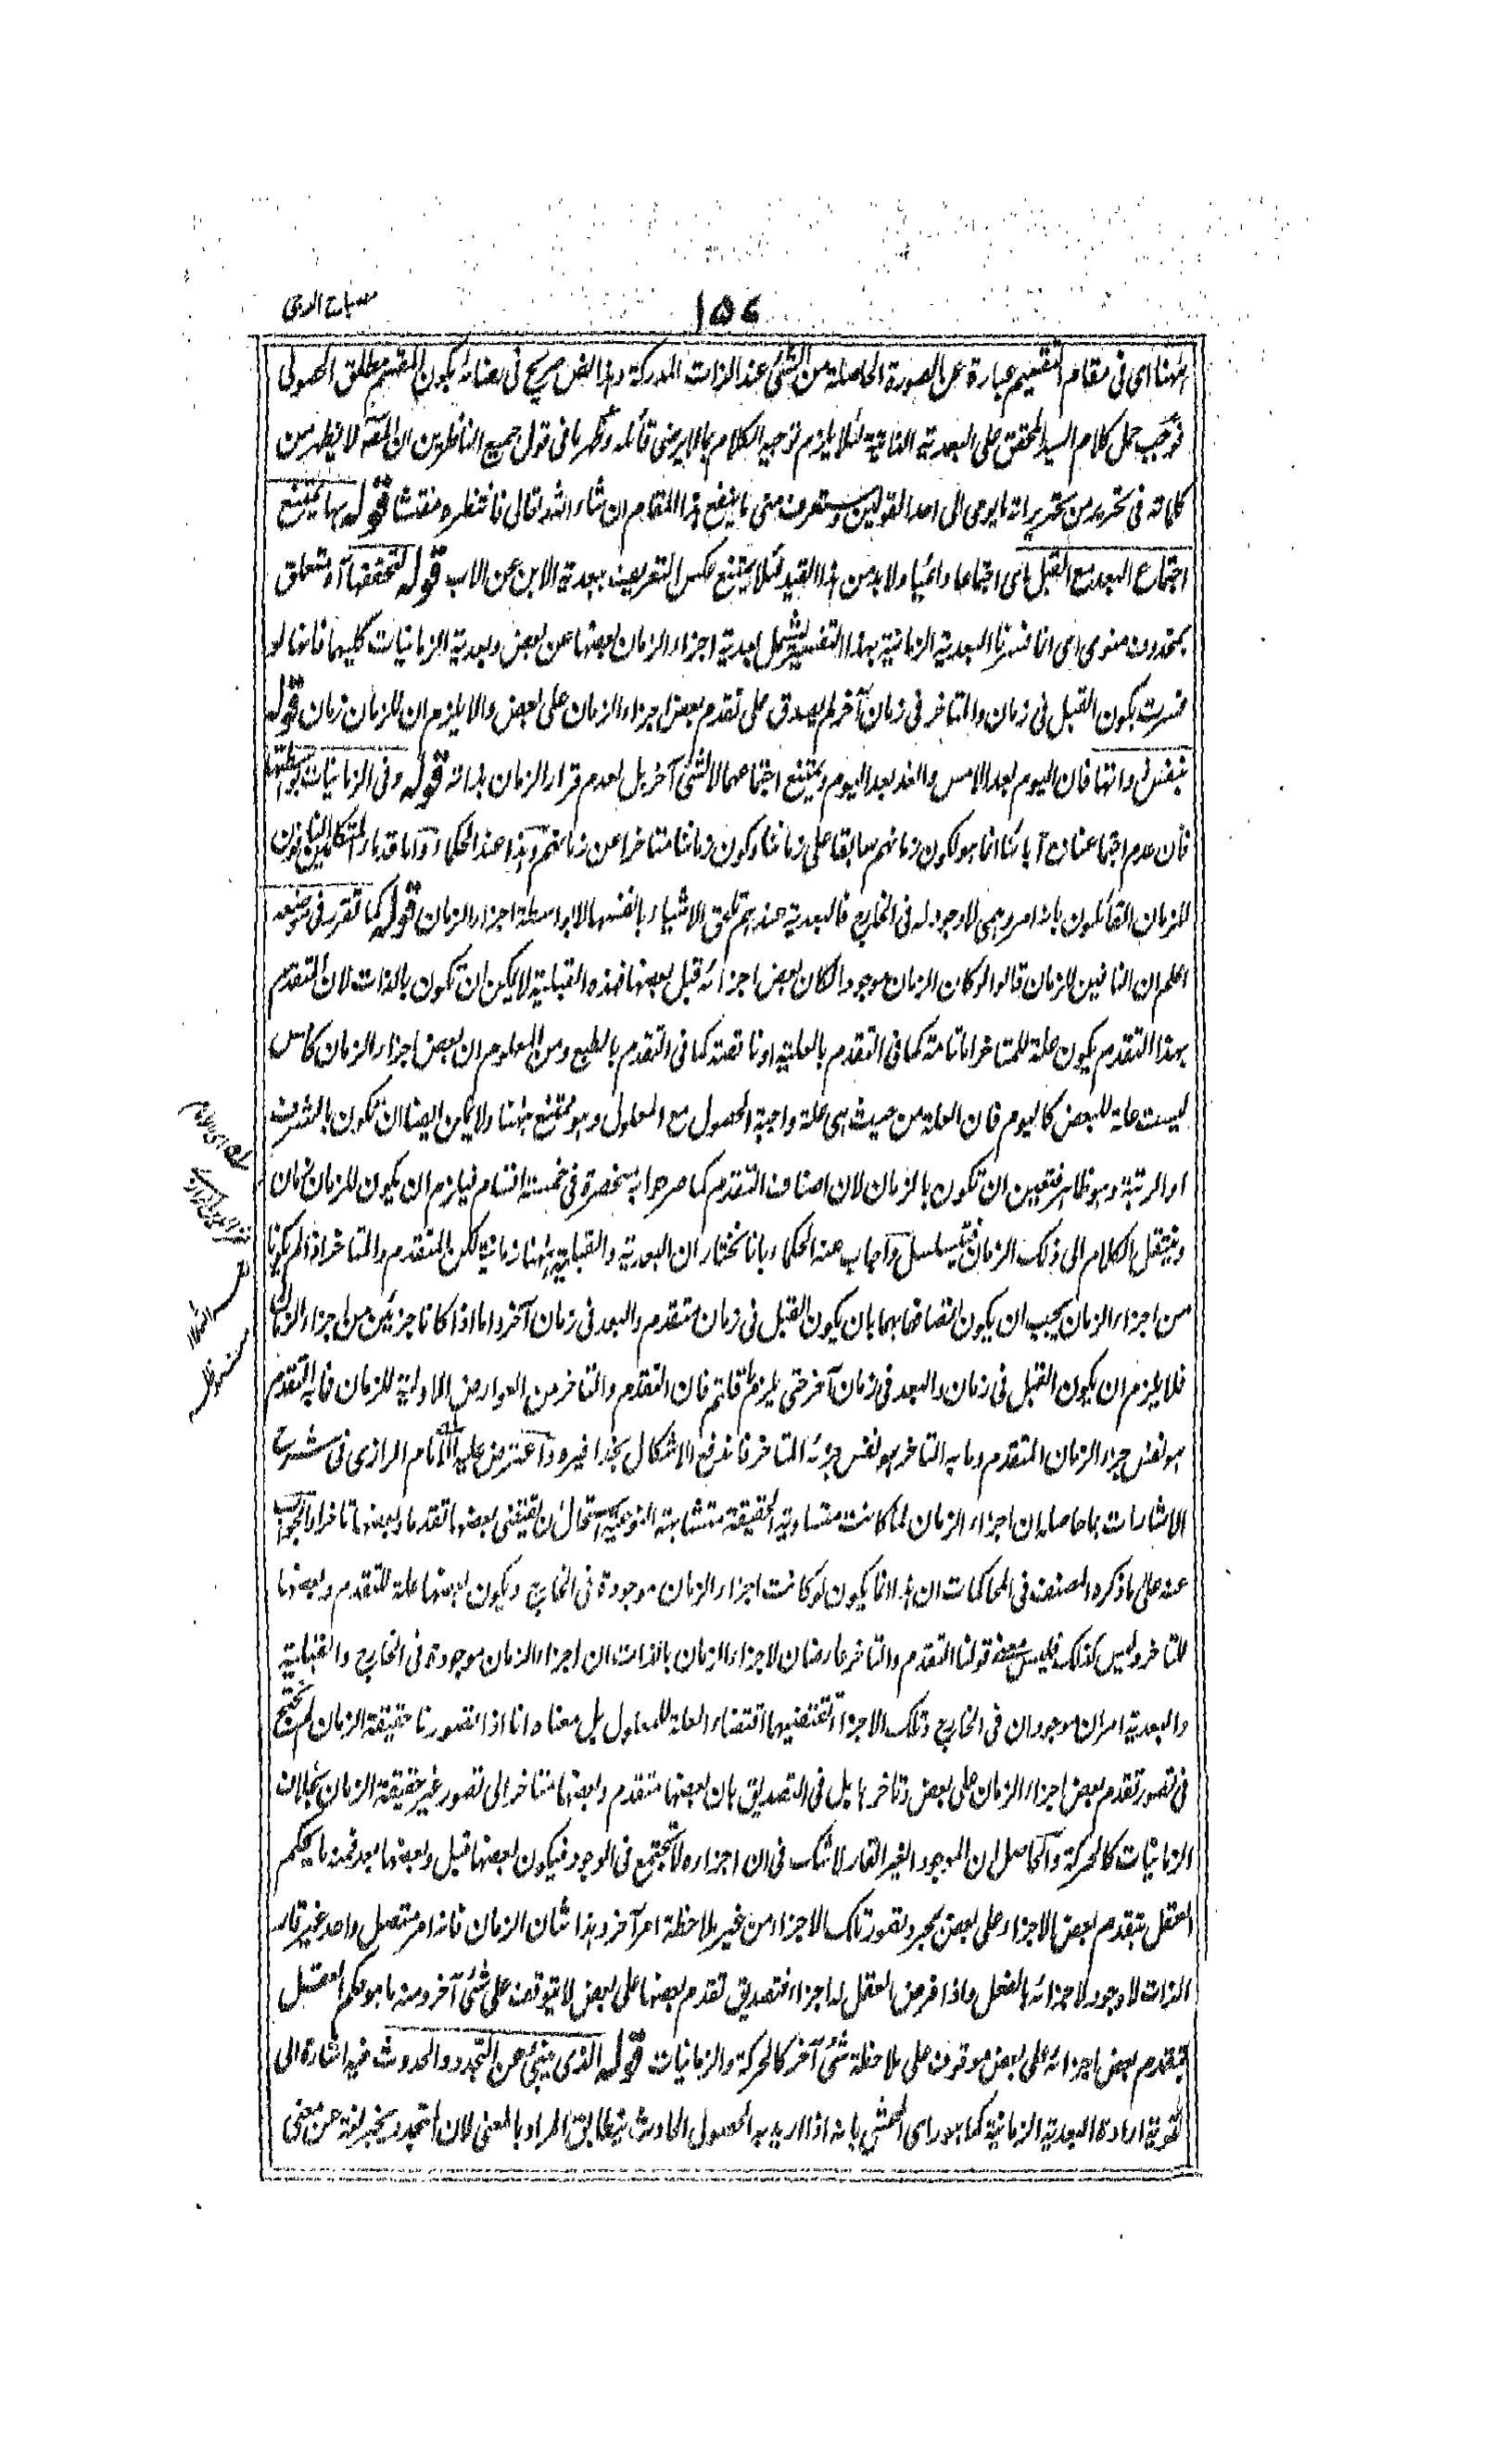 ١٥٧
مصباح الدجى
ههنا اى فى مقام التقسيم عبارة عن الصورة الحاصلة من الشئ عند الذات المدركة وهذا نص صريح فى رضائه بكون المقسم مطلق الحصولى
فوجب حمل كلام السيد المحقق على البعدية الذاتية لئلا يلزم توجيه الكلام بما لا يرضى قائله وظهر ما فى قول جميع الناظرين ان المحقق لا يظهر من
كلماته فى تحرير من تحريراته ما يومى الى احد القولين وستعرف منى ما ينفع هذا المقام ان شاء الله تعالى فانتظره مفتشا قوله بها يمتنع
اجتماع البعد مع القبل اى اجتماعا دائميا ولابد من هذا القيد لئلا يمتنع عكس التعريف ببعدية الابن عن الاب قوله لتحققها آه متعلق
بمحذوف منوى اى انا فسرنا البعدية الزمانية بهذا التفسير ليشمل بعدية اجزاء الزمان بعضها عن بعض وبعدية الزمانيات كليهما فانها لو
فسرت بكون القبل فى زمان والمتاخر فى زمان آخر لم يصدق على تقدم بعض اجزاء الزمان على بعض والا يلزم ان للزمان زمان قوله
بنفس ذواتها فان اليوم بعد الامس والغد بعد اليوم ويمتنع اجتماعهما لا لشئ آخر بل لعدم قرار الزمان بذاته قوله وفى الزمانيات بواسطتها
فان عدم اجتماعنا مع آبائنا انما هو لكون زمانهم سابقا على زماننا وكون زماننا متاخرا عن زمانهم وهذا عند الحكماء واما قدماء المتكلمين النافون
للزمان القائلون بانه امر وهمى لا وجود له فى الخارج فالبعدية عندهم تلحق الاشياء بانفسها لا بواسطة اجزاء الزمان قوله كما تقرر فى موضعه
اعلم ان النافين للزمان قالوا لو كان الزمان موجودا لكان بعض اجزائه قبل بعضها فهذه القبلية لا يمكن ان تكون بالذات لان المتقدم
بهذا التقدم يكون علة للمتاخر اما تامة كما فى التقدم بالعلية او ناقصة كما فى التقدم بالطبع ومن المعلوم ان بعض اجزاء الزمان كامس
ليست علة للبعض كاليوم فان العلة من حيث هى علة واجبة الحصول مع المعلول وهو ممتنع ههنا ولا يمكن ايضا ان تكون بالشرف
او الرتبة وهو ظاهر فتعين ان تكون بالزمان لان اصناف التقدم كما صرحوا به منحصرة فى خمسة اقسام فيلزم ان يكون للزمان زمان
وينتقل الكلام الى ذلك الزمان فيتسلسل واجاب عنه الحكماء بانا نختار ان البعدية والقبلية ههنا زمانية لكن المتقدم والمتاخر اذا لم يكونا
من اجزاء الزمان يجب ان يكون اتصافهما بهما بان يكون القبل فى زمان متقدم والبعد فى زمان آخر واما اذا كانا جزئين من اجزاء الزمان
فلا يلزم ان يكون القبل فى زمان والبعد فى زمان آخر حتى يلزم ما قلتم فان التقدم والتاخر من العوارض الاولية للزمان فما به التقدم
هو نفس جزء الزمان المتقدم وما به التاخر هو نفس جزئه المتاخر فاندفع الاشكال بحذافيره واعترض عليه الامام الرازى فى شرح
الاشارات بما حاصله ان اجزاء الزمان لما كانت متساوية الحقيقة متشابهة النوعية استحال ان يقتضى بعضها تقدما وبعضها تاخرا والجواب
عنه على ما ذكره المصنف فى المحاكمات ان هذا انما يكون لو كانت اجزاء الزمان موجودة فى الخارج ويكون بعضها علة للتقدم وبعضها
للتاخر وليس كذلك فليس معنى قولنا التقدم والتاخر عارضان لاجزاء الزمان بالذات ان اجزاء الزمان موجودة فى الخارج والقبلية
والبعدية امران موجودان فى الخارج وتلك الاجزاء تقتضيهما اقتضاء العلة للمعلول بل معناه انا اذا تصورنا حقيقة الزمان لم نحتج
فى تصور تقدم بعض اجزاء الزمان على بعض وتاخرها بل فى التصديق بان بعضها متقدم وبعضها متاخر الى تصور غير حقيقة الزمان بخلاف
الزمانيات كالحركة والحاصل ان الموجود الغير القار لا شك فى ان اجزاءه لا تجتمع فى الوجود فيكون بعضها قبل وبعضها بعد فمنه ما يحكم
العقل بتقدم بعض الاجزاء على بعض بمجرد تصور تلك الاجزاء من غير ملاحظة امر آخر وهذا شان الزمان فانه امر متصل واحد غير قار
الذات لا وجود لاجزائه بالفعل واذا فرض العقل له اجزاء فتصديق تقدم بعضها على بعض لا يتوقف على شئ آخر ومنه ما هو حكم العقل
بتقدم بعض اجزائه على بعض موقوف على ملاحظة شئ آخر كالحركة والزمانيات قوله الذى ينبئ عن التجدد والحدوث فيه اشارة الى
تقوية ارادة البعدية الزمانية كما هو راى المحشى بانه اذا اريد به الحصول الحادث يتطابق المراد بالمعنى لان المتجدد يخبر لغة عن معنى